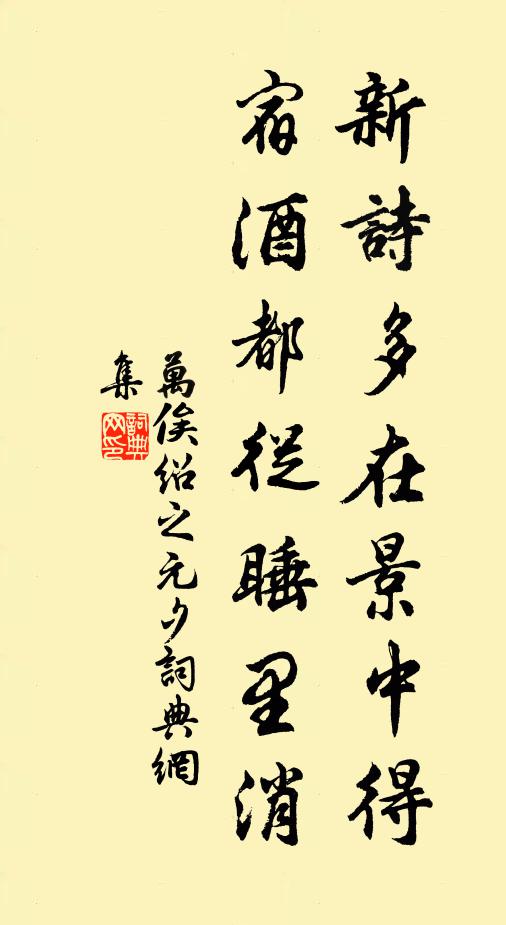 新詩多在景中得
宿酒都從睡里消
萬俟绍之元夕詞典網
集
詞典
网印